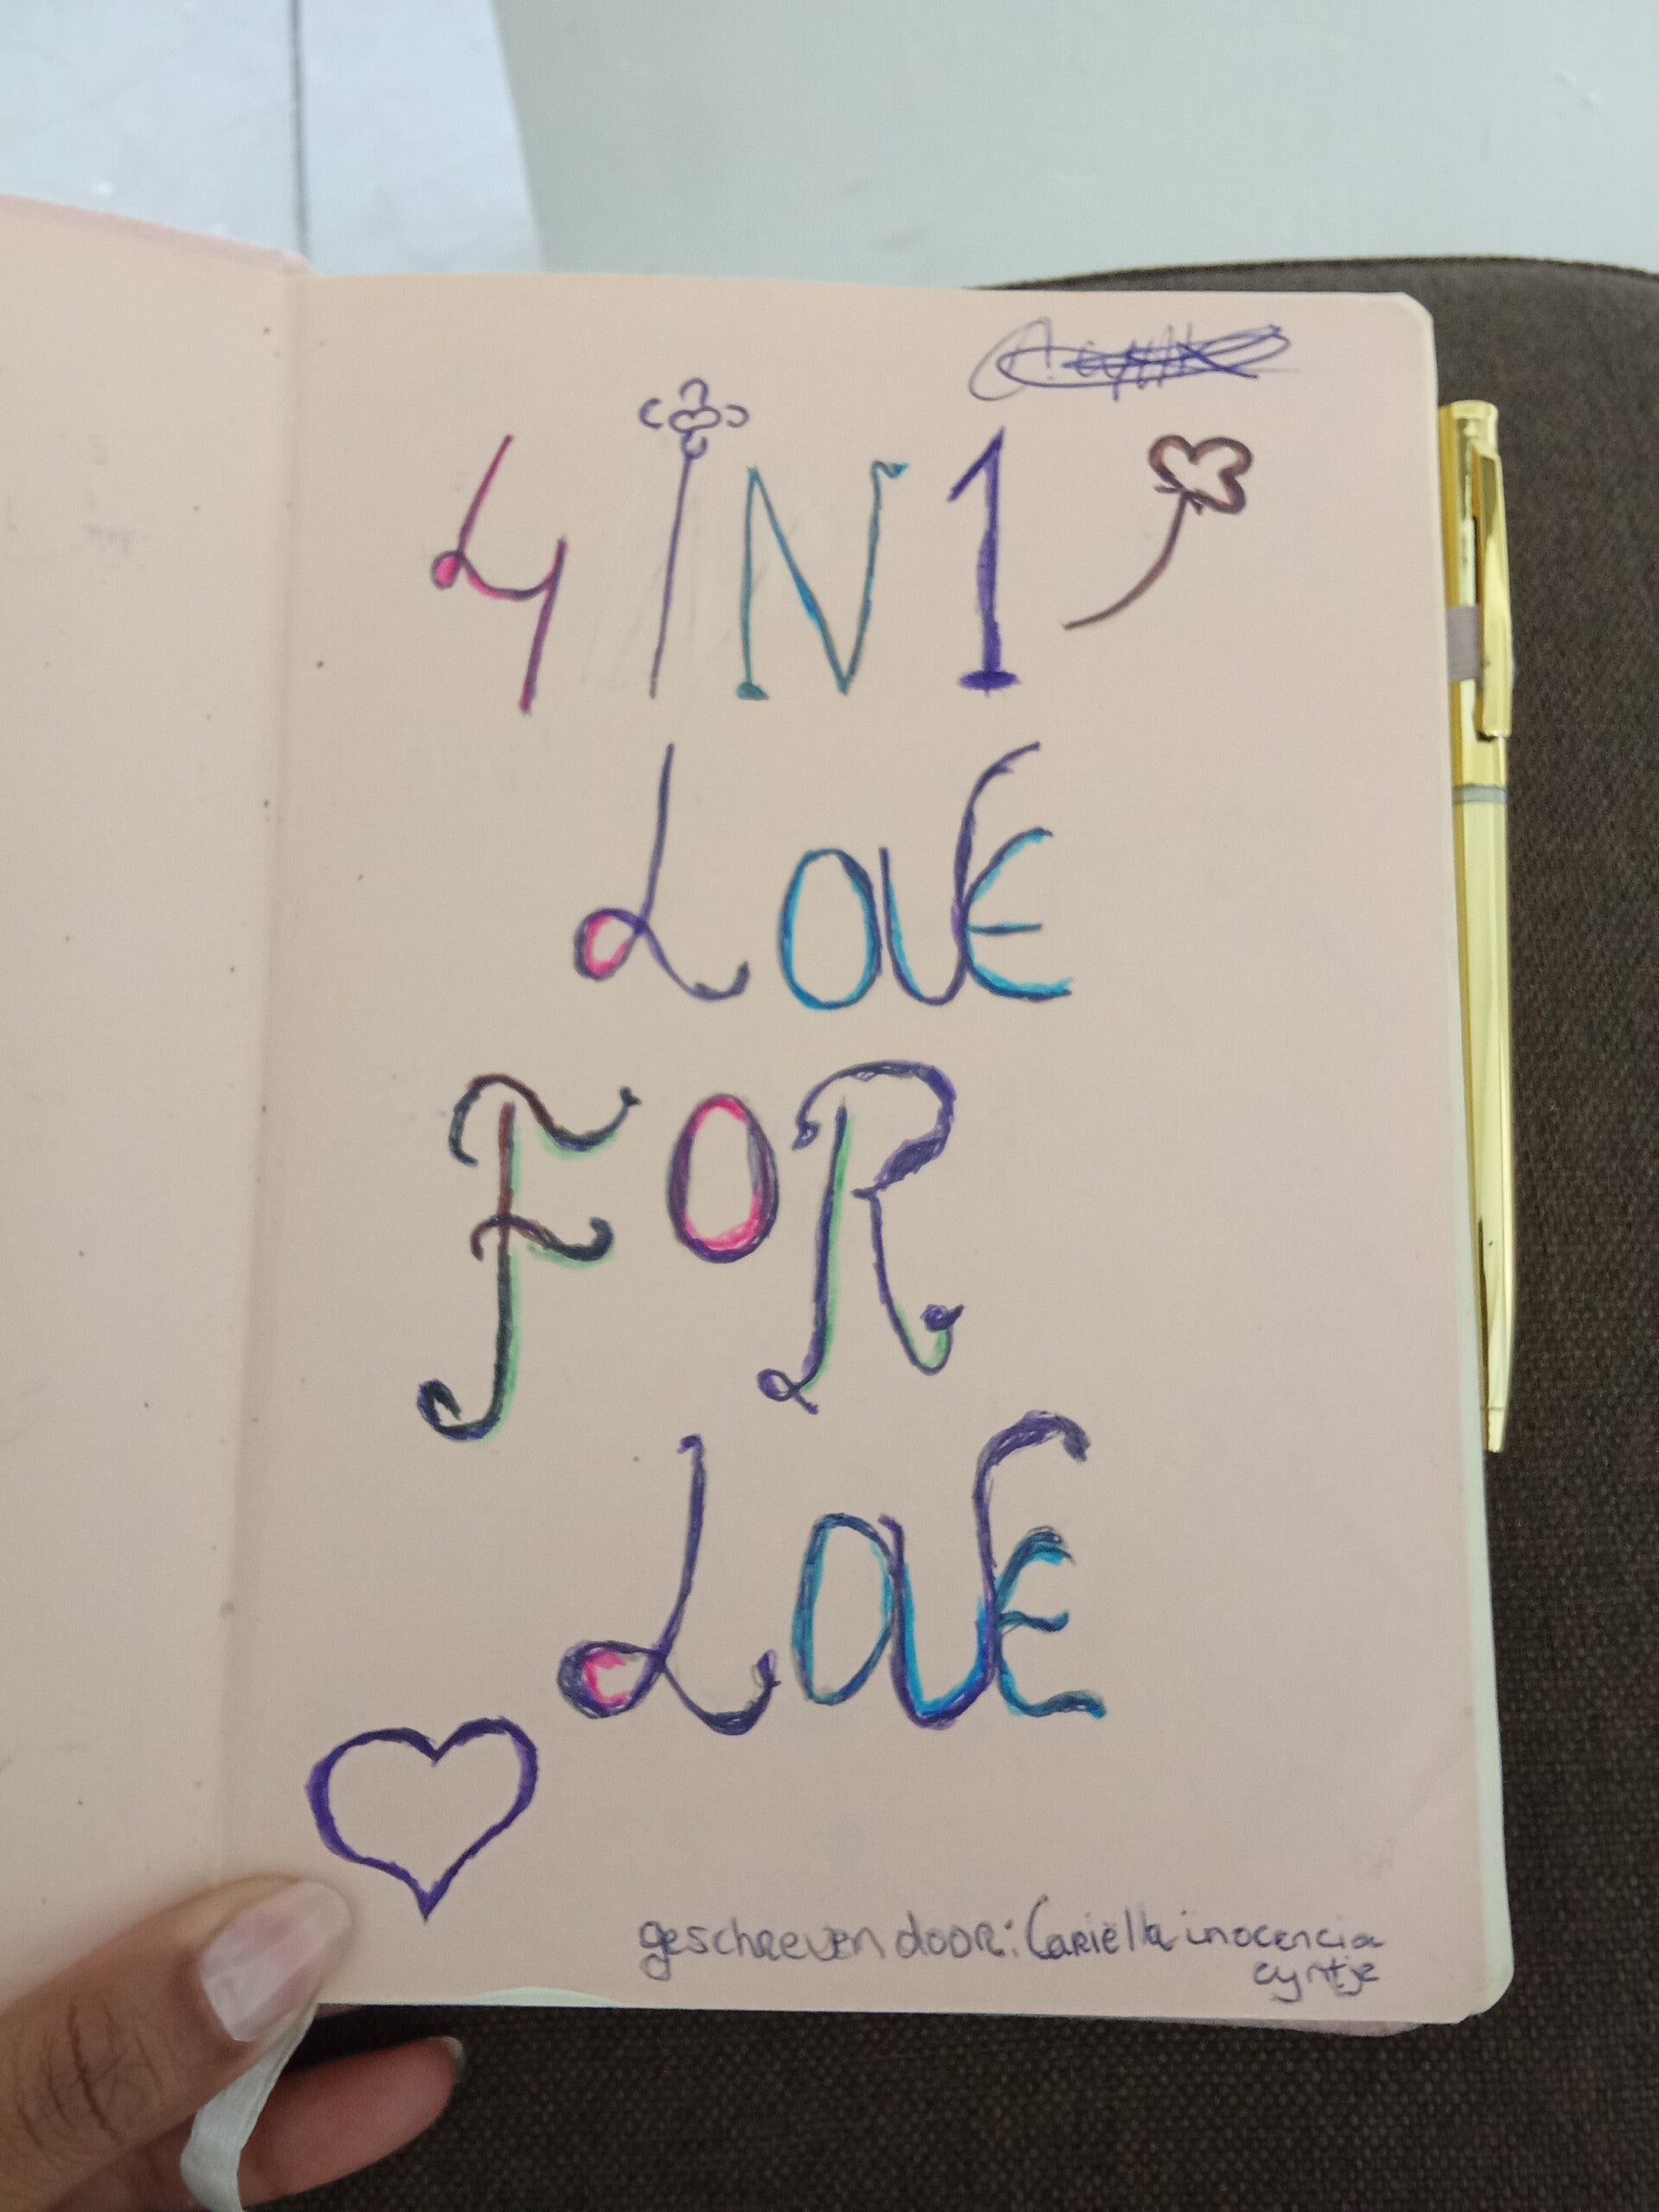 4 IN 1
LOVE
FOR
LOVE
geschreven door: Cariëlla inocencia
cyntje